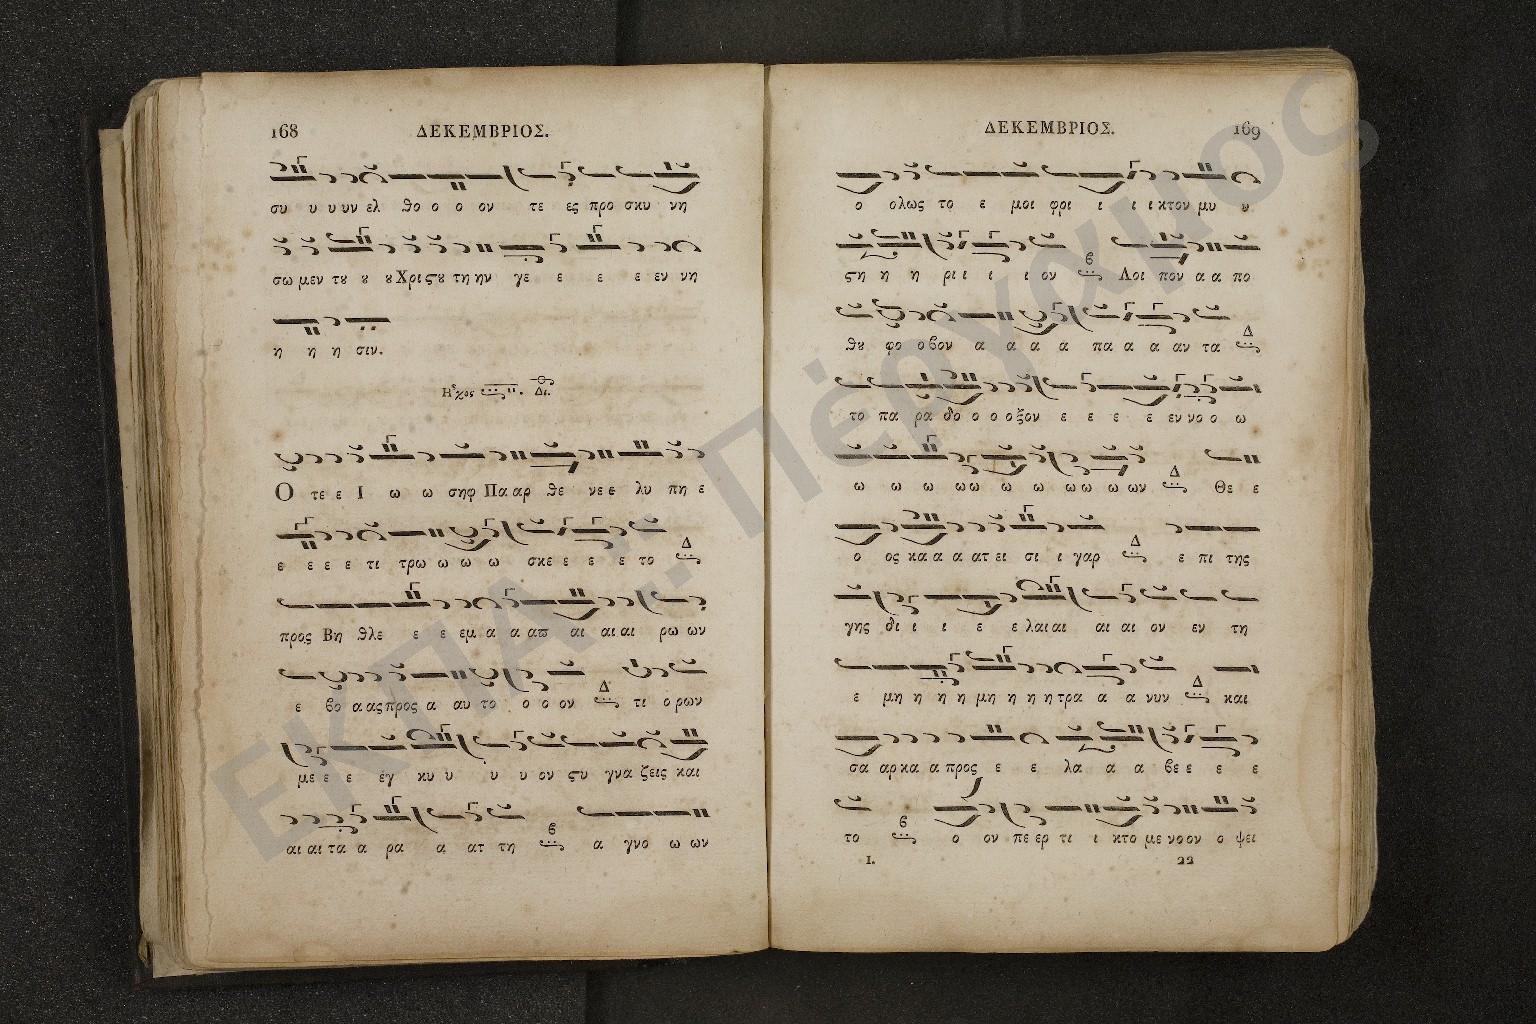 168 ΔΕΚΕΜΒΡΙΟΣ.
συ υ υ υν ελ θο ο ο ον τε ες προ σκυ νη
σω μεν τȣ ȣ ȣ Χριςȣ τη ην γε ε ε ε εν νη
η η η σιν.
Ηχος Δι.
Ο τε ε Ι ω ω σηφ Πα αρ θε νε ε λυ πη ε
ε ε ε ε τι τρω ω ω ω σκε ε ε ε το Δ
προς Βη θλε ε ε εμ α α απ αι αι αι ρω ων
ε βο α ας προς α αυ το ο ο ον Δ τι ο ρων
με ε ε έγ κυ υ υ υ ον ςυ γνα ζεις και
αι αι τα α ρα α ατ τη ϐ α γνο ω ων
ΔΕΚΕΜΒΡΙΟΣ. 169
ο ολως το ε μοι φρι ι ι ικτον μυ υ
ςη η η ρι ι ι ι ον ϐ Λοι πον α α πο
θȣ φο οβον α α α α πα α α αν τα Δ
το πα ρα δο ο ο οξον ε ε ε ε εν νο ο ω
ω ω ω ωω ω ω ωω ω ων Δ Θε ε
ο ος κα α α ατ ει σι ι γαρ Δ ε πι της
γης δι ι ι ε ε λαι αι αι αι ον εν τη
ε μη η η η μη η η η τρα α α νυν Δ και
σα αρ κα α προς ε ε λα α α βε ε ε ε
το ϐ ο ον πε ερ τι ι κτο με νο ον ο ψει
I. 22
ΕΚΠΑ : Πέργαμος